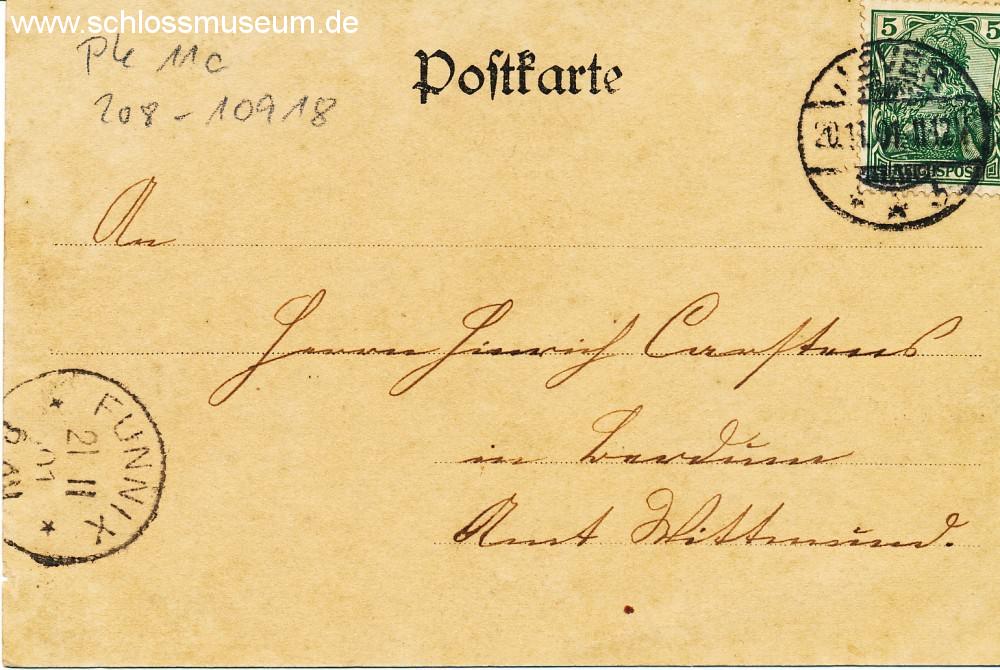 www.schlossmuseum.de
Pk 11c
208-10918
Poſtkarte
5 5
JEVER
20.11.01.11-12V
REICHSPOST
* * b
An
Herrn Hinrich Carstens
in Berdum
Amt Wittmund.
FUNNIX
21 11
01
* *